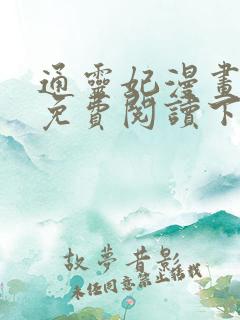 通靈妃漫畫
免費閱讀下
故夢昔影
未經同意禁止轉載